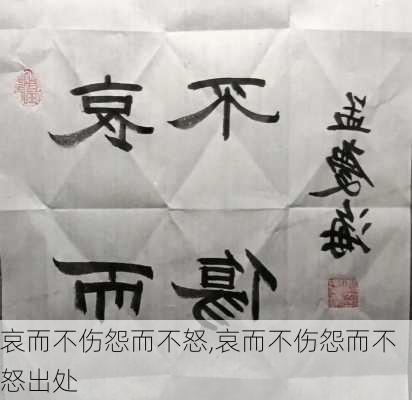 哀而
不傷
哀而不伤怨而不怒,哀而不伤怨而不
怒出处